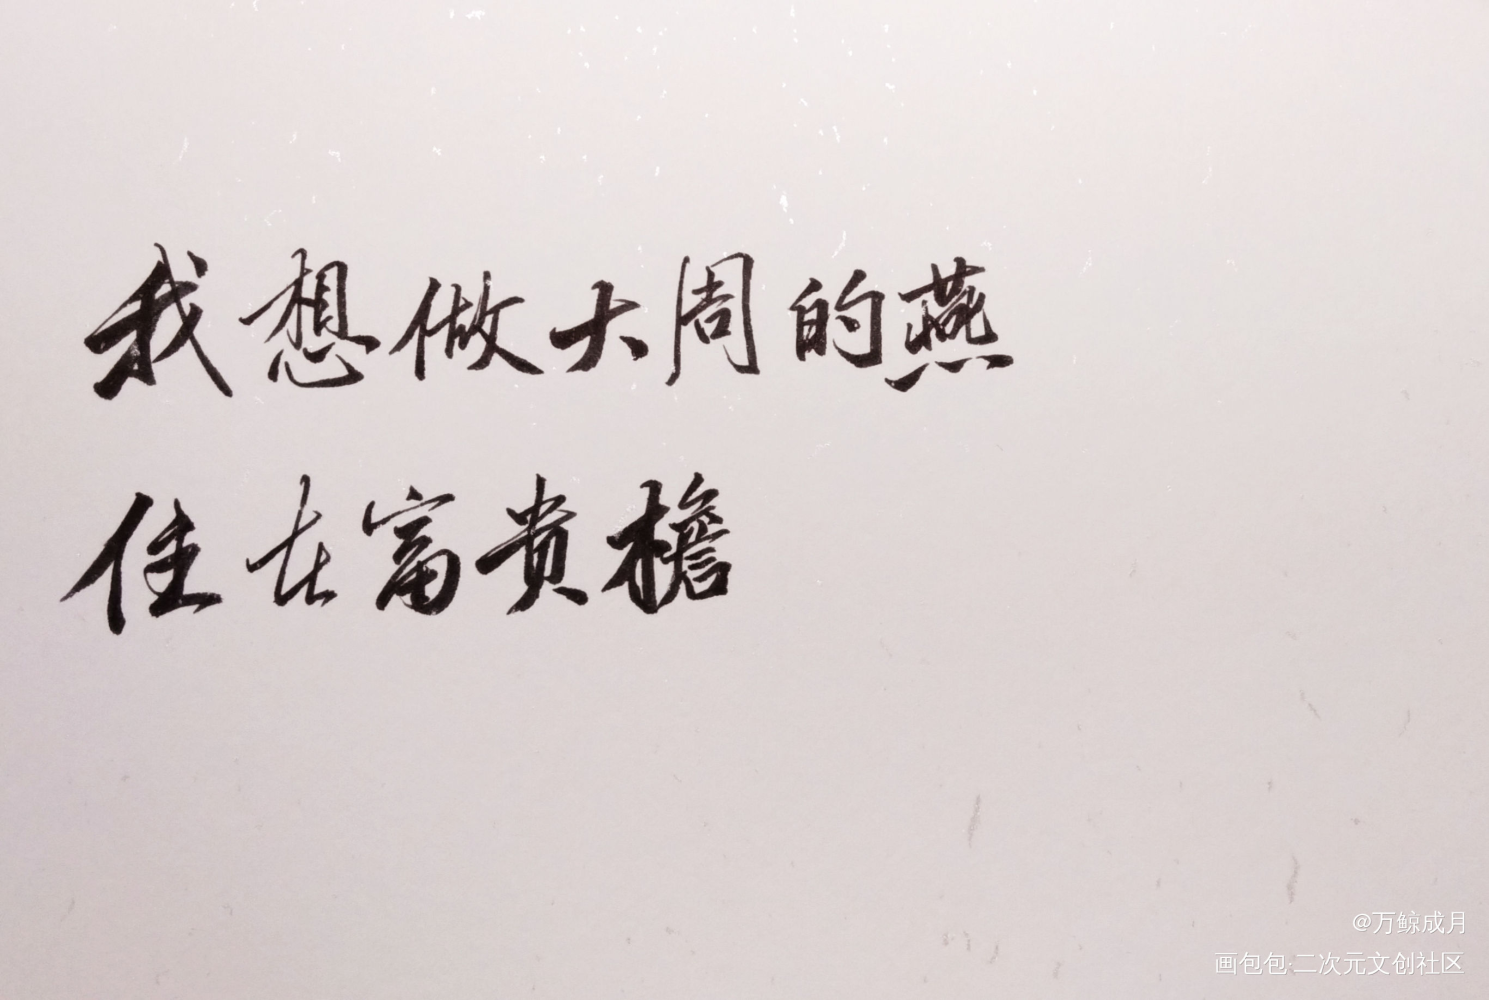 我想做大周的燕
住在富貴檐
@万鲸成月
画包包·二次元文创社区